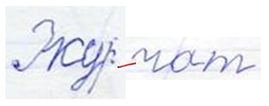 Жур-чат